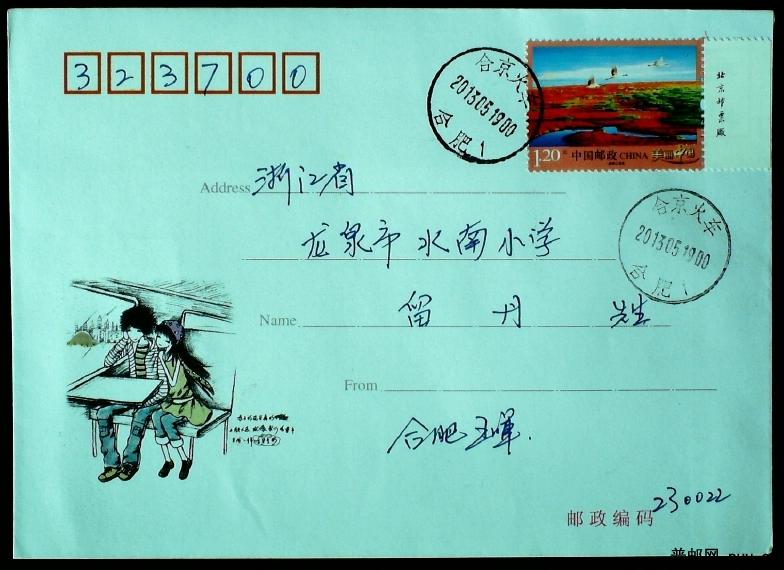 323700
合京火车
2013.05.19.00
合肥1
北京邮票厂
1.20元 中国邮政 CHINA 美丽中国
Address 浙江省
龙泉市水南小学
合京火车
2013.05.19.00
合肥1
Name 留丹 先生
From
合肥王晖.
邮政编码 230022
普邮网